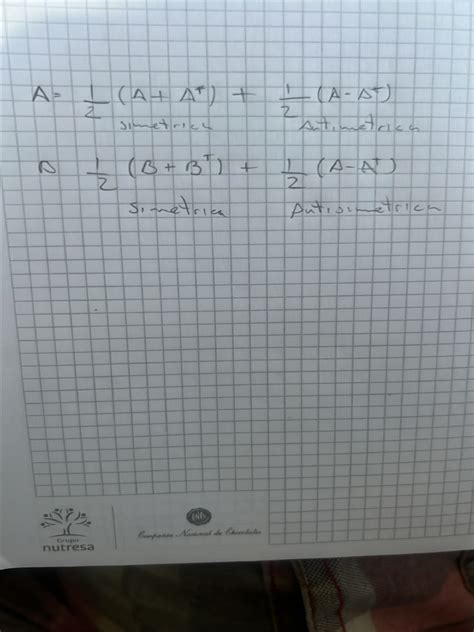 A = 1/2 (A + Aᵀ) + 1/2 (A - Aᵀ)
Simetrica Antimetrica
B 1/2 (B + Bᵀ) + 1/2 (A - Aᵀ)
Simetrica Antisimetrica
Grupo
nutresa
Compañía Nacional de Chocolates